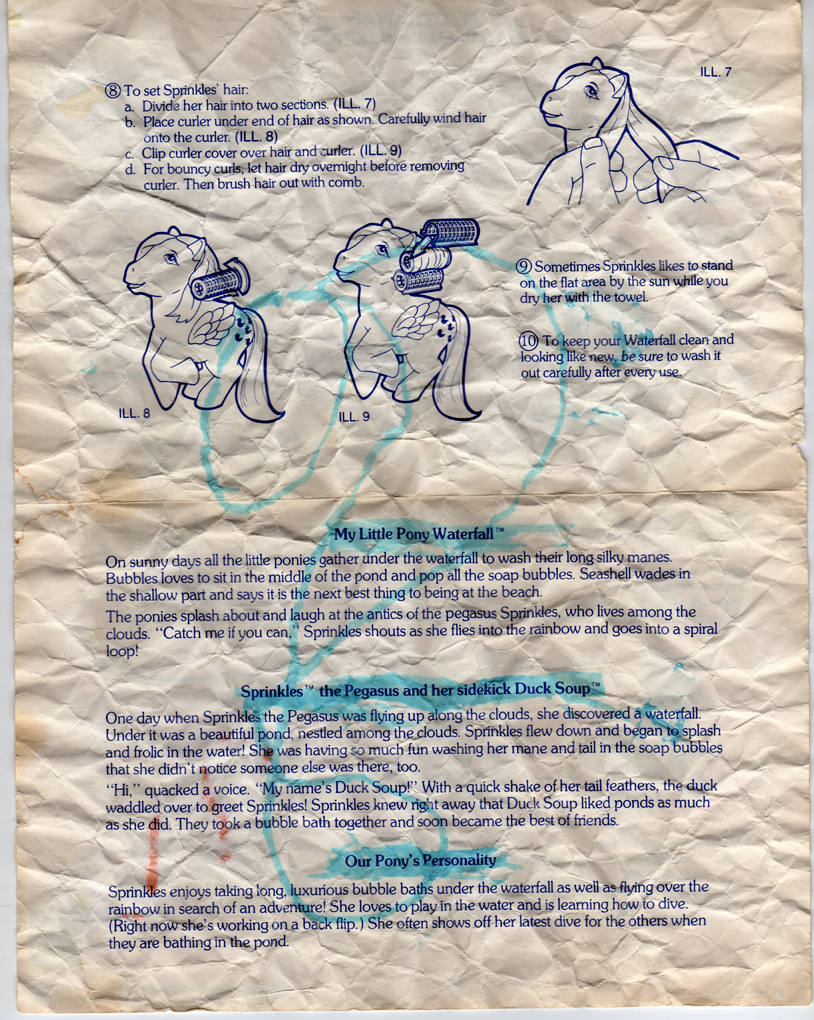 ⑧ To set Sprinkles' hair:
a. Divide her hair into two sections. (ILL. 7)
b. Place curler under end of hair as shown. Carefully wind hair
onto the curler. (ILL. 8)
c. Clip curler cover over hair and curler. (ILL. 9)
d. For bouncy curls, let hair dry overnight before removing
curler. Then brush hair out with comb.
ILL. 7
ILL. 8
ILL. 9
⑨ Sometimes Sprinkles likes to stand
on the flat area by the sun while you
dry her with the towel.
⑩ To keep your Waterfall clean and
looking like new, be sure to wash it
out carefully after every use.
My Little Pony Waterfall™
On sunny days all the little ponies gather under the waterfall to wash their long silky manes.
Bubbles loves to sit in the middle of the pond and pop all the soap bubbles. Seashell wades in
the shallow part and says it is the next best thing to being at the beach.
The ponies splash about and laugh at the antics of the pegasus Sprinkles, who lives among the
clouds. "Catch me if you can," Sprinkles shouts as she flies into the rainbow and goes into a spiral
loop!
Sprinkles™ the Pegasus and her sidekick Duck Soup™
One day when Sprinkles the Pegasus was flying up along the clouds, she discovered a waterfall.
Under it was a beautiful pond, nestled among the clouds. Sprinkles flew down and began to splash
and frolic in the water! She was having so much fun washing her mane and tail in the soap bubbles
that she didn't notice someone else was there, too.
"Hi," quacked a voice. "My name's Duck Soup!" With a quick shake of her tail feathers, the duck
waddled over to greet Sprinkles! Sprinkles knew right away that Duck Soup liked ponds as much
as she did. They took a bubble bath together and soon became the best of friends.
Our Pony's Personality
Sprinkles enjoys taking long, luxurious bubble baths under the waterfall as well as flying over the
rainbow in search of an adventure! She loves to play in the water and is learning how to dive.
(Right now she's working on a back flip.) She often shows off her latest dive for the others when
they are bathing in the pond.